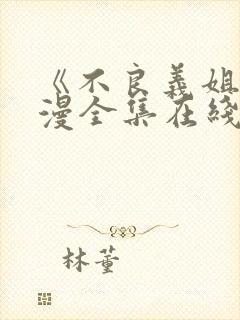 《不良義姐
漫全集在綫
林董